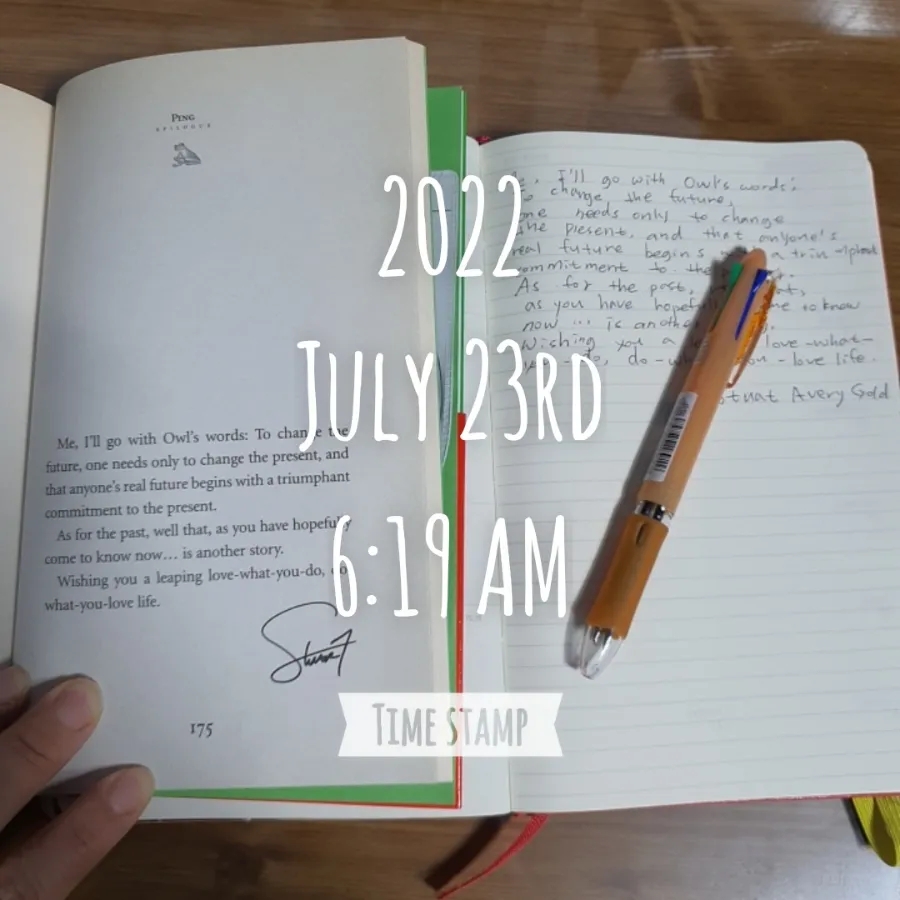 PING
EPILOGUE
Me, I'll go with Owl's words: To change the
future, one needs only to change the present, and
that anyone's real future begins with a triumphant
commitment to the present.
As for the past, well that, as you have hopefully
come to know now... is another story.
Wishing you a leaping love-what-you-do, do
what-you-love life.
175
I'll go with Owl's words:
To change the future,
one needs only to change
the present, and that anyone's
real future begins a trium-phant
commitment to the
As for the past,
as you have to know
now ... is
Wishing you a love-what-
you-do, do you-love life.
Avery Gold
2022
JULY 23RD
6:19 AM
TIME STAMP